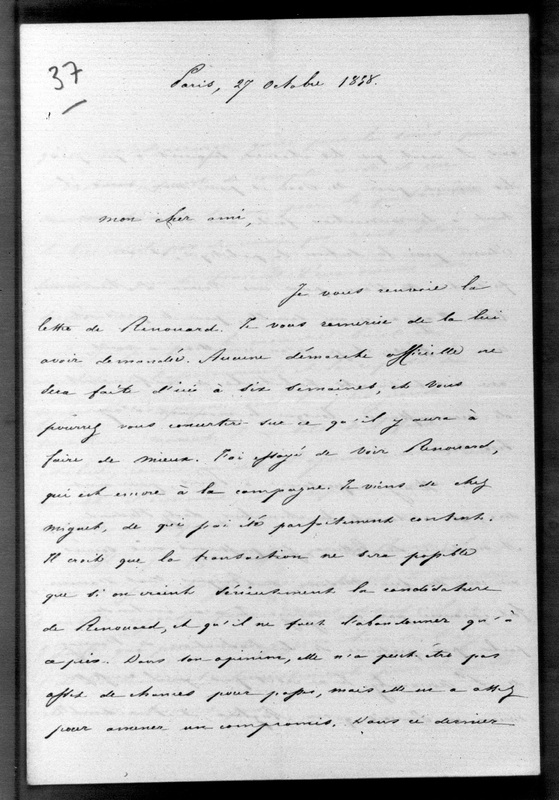 37
Paris, 27 octobre 1858.
mon cher ami,
Je vous renvoie la
lettre de Renouard. Je vous remercie de la lui
avoir demandée. Aucune démarche officielle ne
sera faite d'ici à six semaines, et vous
pourrez vous concerter sur ce qu'il y aura à
faire de mieux. J'ai essayé de voir Renouard,
qui est encore à la campagne. Je viens de chez
Mignet, de qui j'ai été parfaitement content.
Il croit que la transaction ne sera possible
que si on craint sérieusement la candidature
de Renouard, et qu'il ne faut l'abandonner qu'à
ce prix. Dans son opinion, elle n'a peut-être pas
assez de chances pour passer, mais elle en a assez
pour amener un compromis. Dans ce dernier